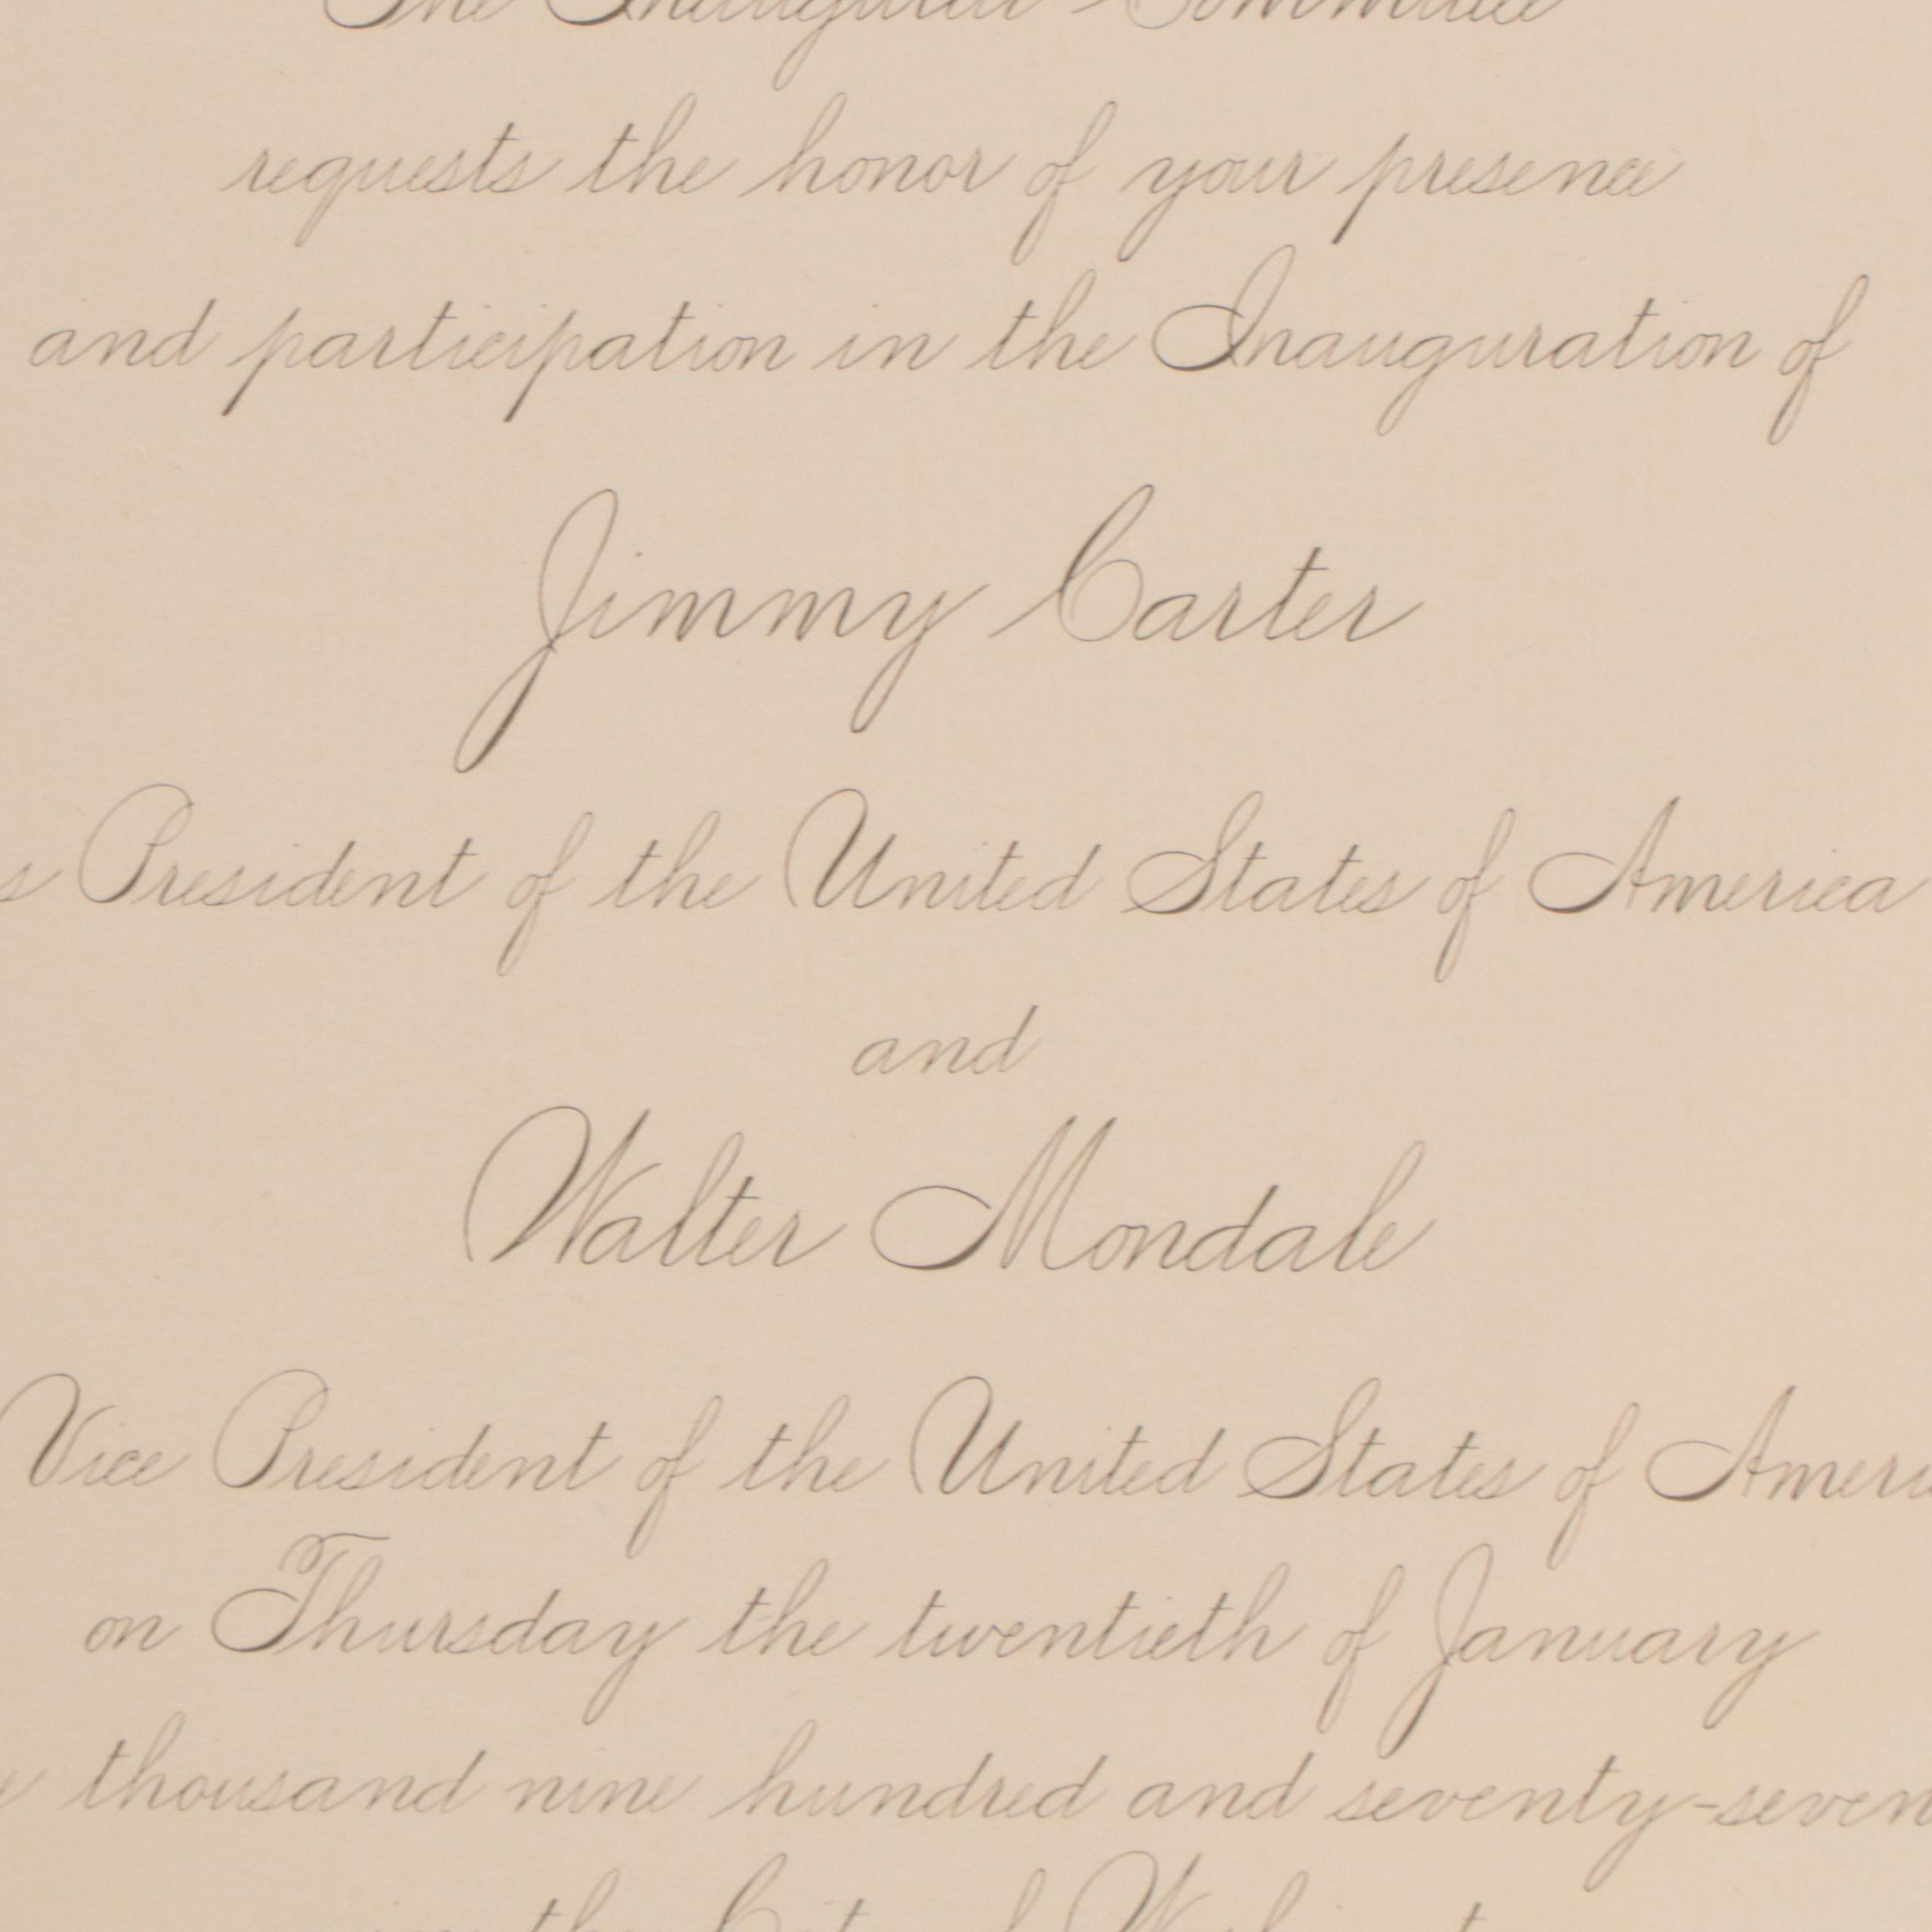 The Inaugural Committee
requests the honor of your presence
and participation in the Inauguration of
Jimmy Carter
s President of the United States of America
and
Walter Mondale
Vice President of the United States of Ameri
on Thursday the twentieth of January
e thousand nine hundred and seventy-seven
in the City of Washington